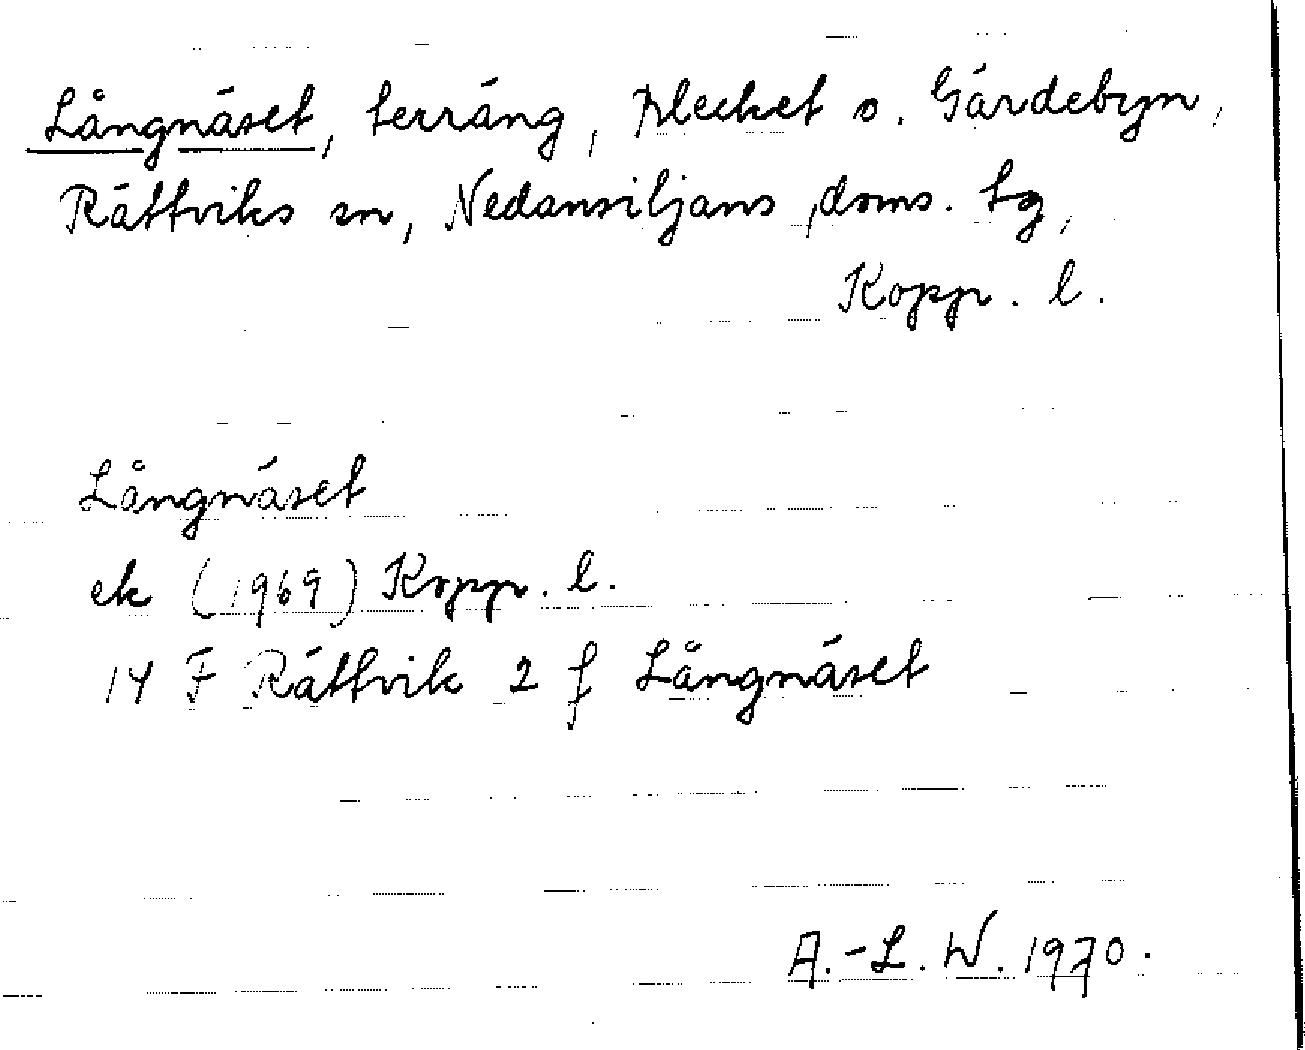 Långnäset, terräng, Blecket o. Gärdebyn,
Rättviks sn, Nedansiljans doms. tg,
Kopp. l.
Långnäset
ek (1969) Kopp. l.
14 F Rättvik 2 f Långnäset
A.-L. W. 1970.